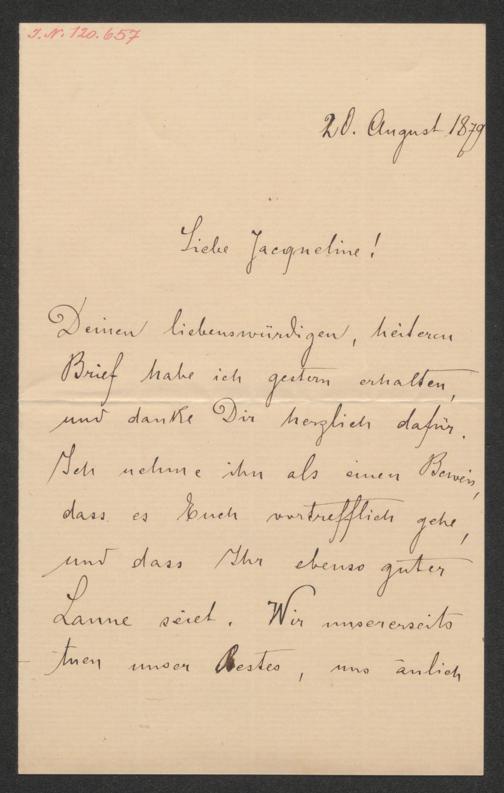 J.N. 120.657
20. August 1879
Liebe Jacqueline!
Deinen liebenswürdigen, heiteren
Brief habe ich gestern erhalten,
und danke Dir herzlich dafür.
Ich nehme ihn als einen Beweis,
dass es Euch vortrefflich gehe,
und dass Ihr ebenso guter
Laune seiet. Wir unsererseits
tuen unser Bestes, uns änlich